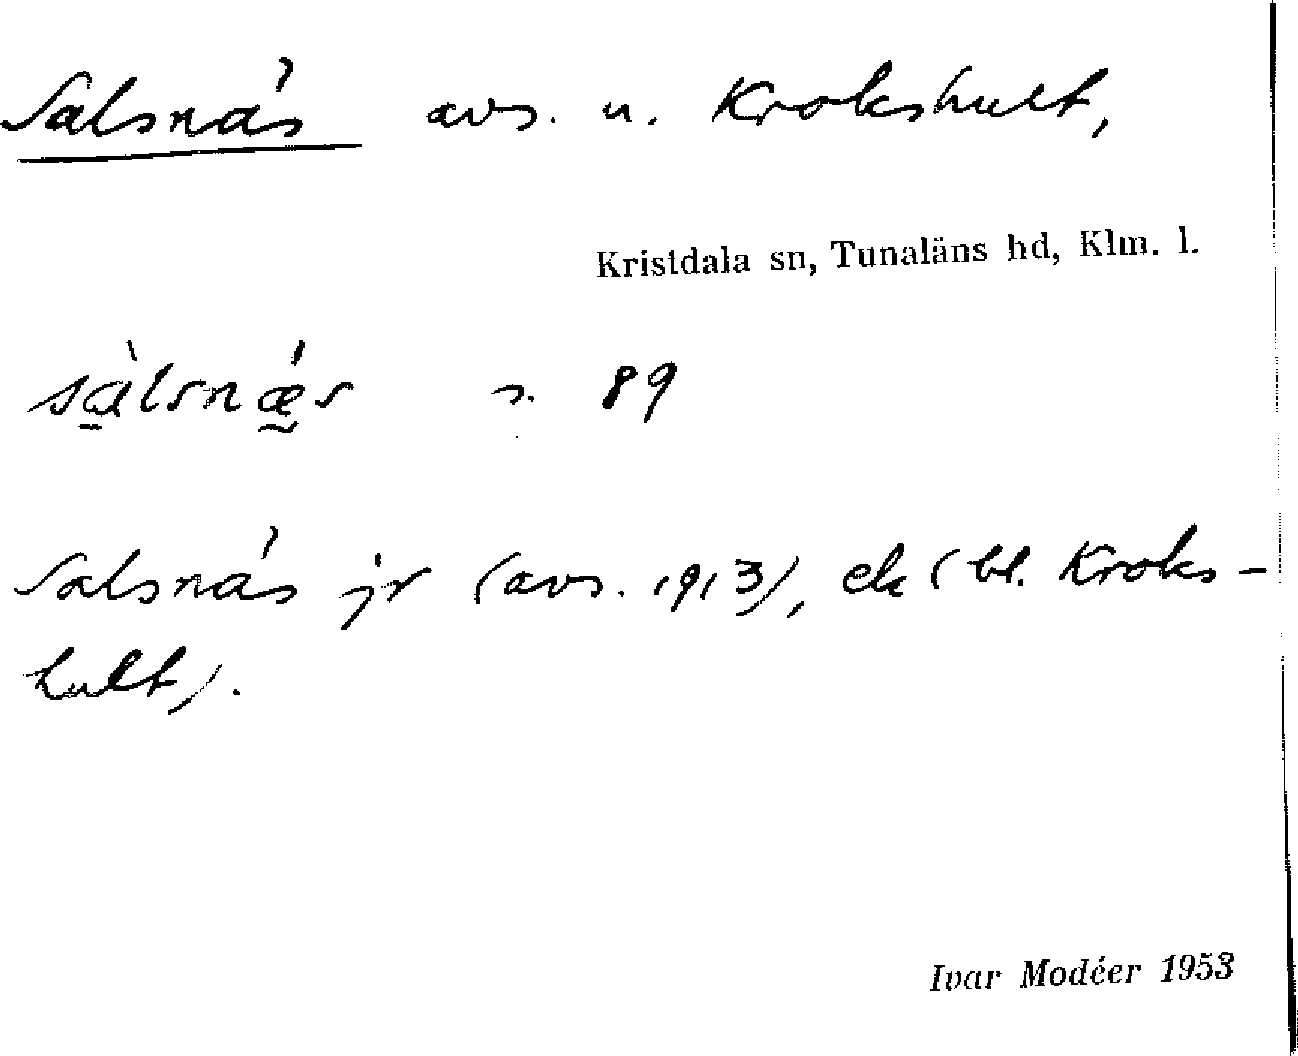 Salsnäs avs. u. Krokshult,
Kristdala sn, Tunaläns hd, Klm. l.
sàlsnǽs s. 89
Salsnäs jr (avs. 1913), ek (bl. Kroks-
hult).
Ivar Modéer 1953